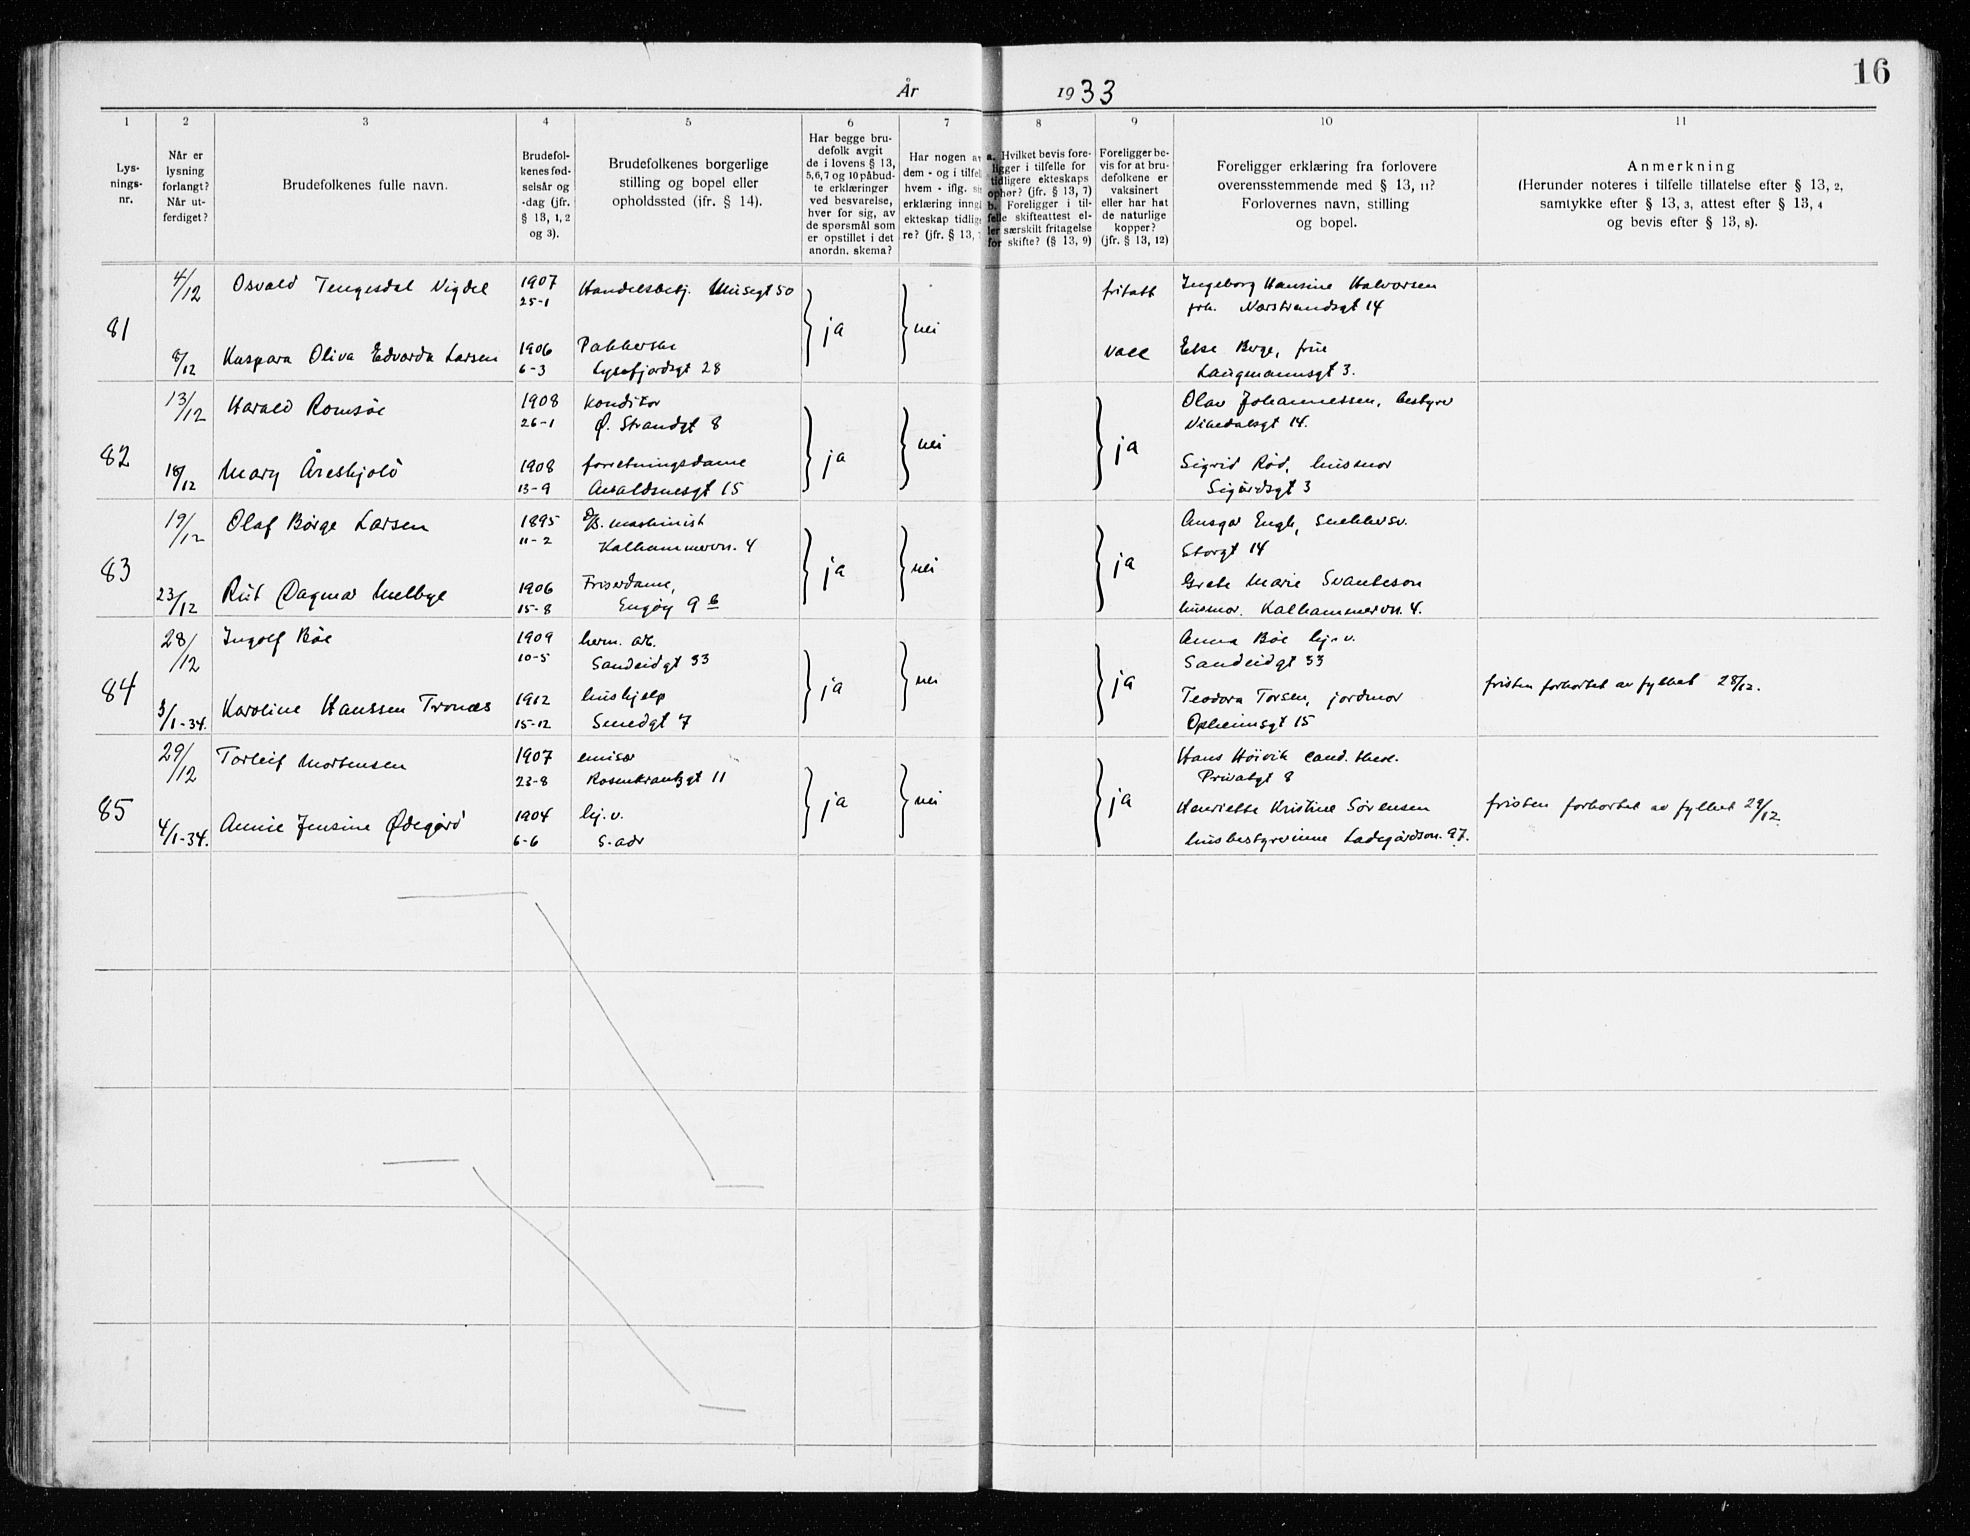 16
År 1933
1 2 3 4 5 6 7 8 9 10 11
Lys-
nings-
nr.
Når er
lysning
forlangt?
Når ut-
ferdiget?
Brudefolkenes fulle navn.
Brudefol-
kenes fød-
selsår og
-dag (jfr.
§ 13, 1, 2
og 3).
Brudefolkenes borgerlige
stilling og bopel eller
opholdssted (jfr. § 14).
Har begge bru-
defolk avgit
de i lovens § 13,
5, 6, 7 og 10 påbud-
te erklæringer
ved besvarelse,
hver for sig, av
de spørsmål som
er opstillet i det
anordn. skema?
Har nogen av
dem - og i tilfel
hvem - iflg. si
erklæring inng
ekteskap tidlig
re? (jfr. § 13,
a. Hvilket bevis fore-
ligger i tilfelle for
tidligere ekteskaps
ophør? (jfr. § 13, 7)
b. Foreligger i til-
felle skifteattest el-
ler særskilt fritagelse
for skifte? (§ 13, 9)
Foreligger be-
vis for at bru-
defolkene er
vaksinert
eller har hat
de naturlige
kopper?
(jfr. § 13, 12)
Foreligger erklæring fra forlovere
overensstemmende med § 13, 11?
Forlovernes navn, stilling
og bopel.
Anmerkning
(Herunder noteres i tilfelle tillatelse efter § 13, 2,
samtykke efter § 13, 3, attest efter § 13, 4
og bevis efter § 13, 8).
4/12 Osvald Tengesdal Vigdel 1907 Handelsbetj. Musegt 50 fritatt Ingeborg Hansine Halvorsen
25-1 frk. Narstrandsgt 14
81 ja nei
8/12 Kaspara Oliva Edvarda Larsen 1906 Pakkerske vacc Else Berge, frue
6-3 Lysefjordsgt 28 Langmannsgt 3.
13/12 Harald Romsöe 1908 Konditor Olav Johannessen, bestyrer
26-1 Ø. Strandgt 8 Vikedalsgt 14.
82 ja nei ja
18/12 Mary Åreskjold 1908 forretningsdame Sigrid Rød, husmor
13-9 Avaldsnesgt 15 Sigurdsgt 3
19/12 Olaf Børge Larsen 1895 D/S. maskinist Ansgar Engh, Snekkersv.
11-2 Kalhammervn. 4 Storgt 14
83 ja nei ja
23/12 Rut Dagmar Melbye 1906 Friserdame, Grete Marie Svanteson
15-8 Engøy 9 b husmor. Kalhammervn. 4.
28/12 Ingolf Bøe 1909 herm. arb. Anna Bøe hj. v.
10-5 Sandeidgt 33 Sandeidgt 33
84 ja nei ja fristen forkortet av fylket 28/12.
3/1-34. Karoline Hanssen Tronæs 1912 hushjelp Teodora Torsen, jordmor
15-12 Smedgt 7 Opheimsgt 15
29/12 Torleif Mortensen 1907 emisær Hans Høivik cand. theol.
23-8 Rosenkrantzgt 11 Privatgt 8
85 ja nei ja fristen forkortet av fylket 29/12.
4/1-34. Annie Jensine Ødegård 1904 hj. v. Henriette Kristine Sørensen
6-6 S. adr husbestyrerinne Ladegårdsv. 97.